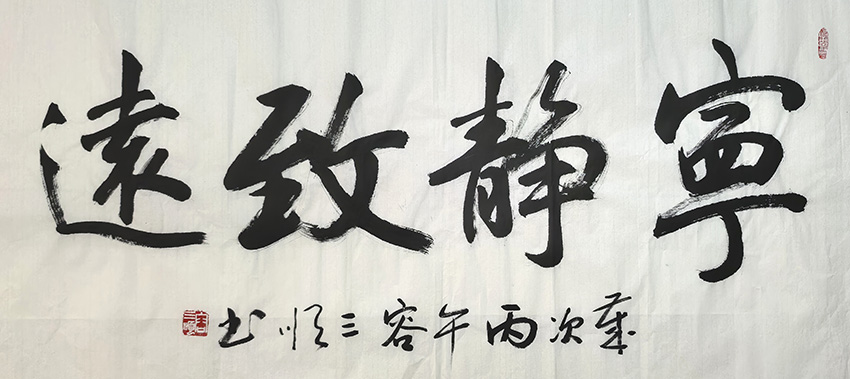 寧靜致遠
歲次丙午容三順书